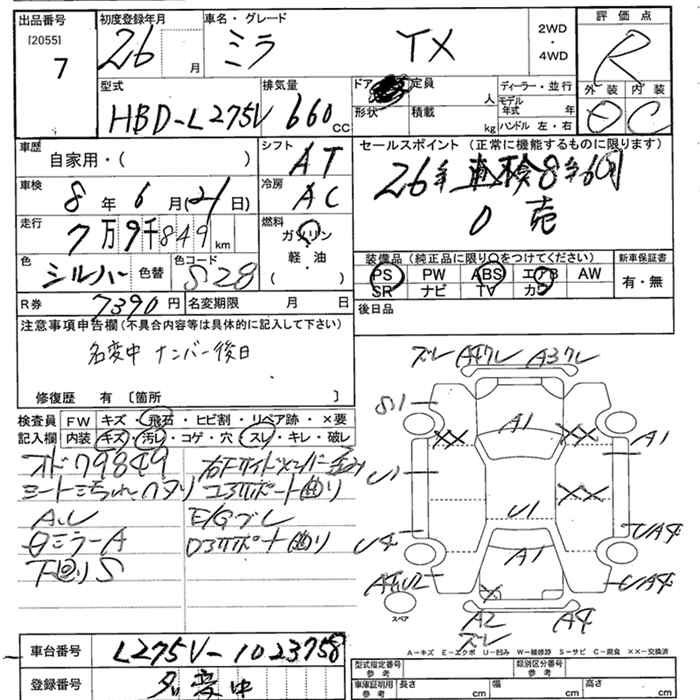 出品番号
[2055]
7
初度登録年月
26 月
車名・グレード
ミラ TX
2WD
・
4WD
評価点
R
外装 内装
D C
型式
HBD-L275V
排気量
660 CC
ドア 定員
人
形状 積載
kg
ディーラー・並行
モデル年式 年
ハンドル 左・右
車歴
自家用・( )
シフト
AT
セールスポイント (正常に機能するものに限ります)
26年 車検8年6月
D 売
車検
8 年 6 月(21日)
冷房
AC
走行
7万9千849km
燃料
ガソリン
軽・油
( )
色
シルバー
色替
色コード
S28
装備品(純正品に限り○をつけてください)
PS PW ABS エアB AW
SR ナビ TV カワ
新車保証書
有・無
R券
7390円
名変期限 月 日
後日品
注意事項申告欄(不具合内容等は具体的に記入して下さい)
名変中 ナンバー後日
修復歴 有 〔箇所 〕
検査員記入欄
FW キズ・飛石・ヒビ割・リペア跡・×要
内装 キズ・汚レ・コゲ・穴・スレ・キレ・破レ
オド79849
A.レ
E/Gブレ
ミラーA
下回りS
ズレ A4ワレ A3ワレ
S1
A1
XX
A1
U1
XX
U1
U4
UA4
A1
UA4
X
スペア
A2
A4
ズレ
A-キズ E-エクボ U-凹み W-補修跡 S-サビ C-腐食 ××-交換済
車台番号
L275V-1023758
登録番号
名変中
型式指定番号 参考
類別区分番号 参考
車庫証明用 参考
長さ cm
幅 cm
高さ cm